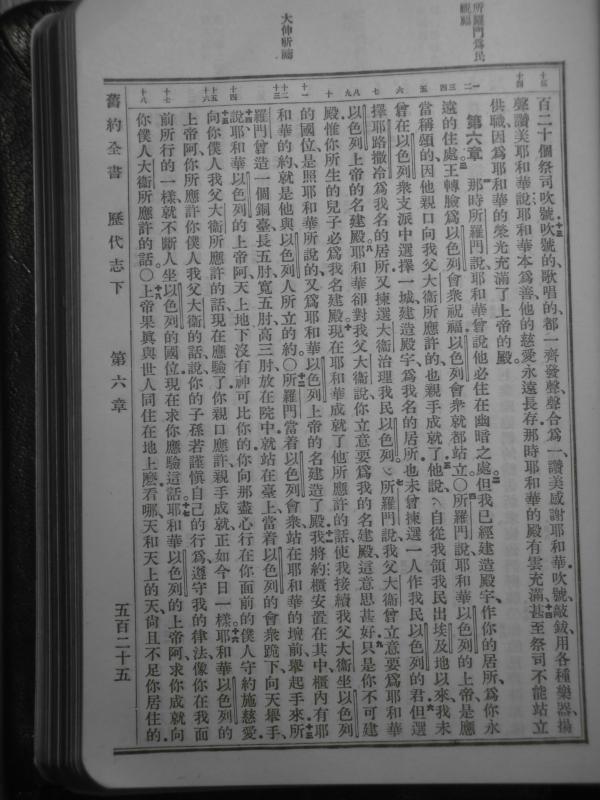 所羅門為民
祝福
大伸祈禱
十三
十四
百二十個祭司吹號吹號的歌唱的都一齊發聲聲合為一讚美感謝耶和華吹號敲鈸用各種樂器揚
聲讚美耶和華說耶和華本為善他的慈愛永遠長存那時耶和華的殿有雲充滿甚至祭司不能站立
供職因為耶和華的榮光充滿了上帝的殿
第六章 那時所羅門說耶和華曾說他必住在幽暗之處但我已經建造殿宇作你的居所為你永
遠的住處王轉臉為以色列會衆祝福以色列會衆就都站立〇所羅門說耶和華以色列的上帝是應
當稱頌的因他親口向我父大衞所應許的也親手成就了他說自從我領我民出埃及地以來我未
曾在以色列衆支派中選擇一城建造殿宇為我名的居所也未曾揀選一人作我民以色列的君但選
擇耶路撒冷為我名的居所又揀選大衞治理我民以色列所羅門說我父大衞曾立意要為耶和華
以色列上帝的名建殿耶和華卻對我父大衞說你立意要為我的名建殿這意思甚好只是你不可建
殿惟你所生的兒子必為我名建殿現在耶和華成就了他所應許的話使我接續我父大衞坐以色列
的國位是照耶和華所說的又為耶和華以色列上帝的名建造了殿我將約櫃安置在其中櫃內有耶
和華的約就是他與以色列人所立的約〇所羅門當着以色列會衆站在耶和華的壇前舉起手來所
羅門曾造一個銅臺長五肘寬五肘高三肘放在院中就站在臺上當着以色列的會衆跪下向天舉手
說耶和華以色列的上帝阿天上地下沒有神可比你的你向那盡心行在你面前的僕人守約施慈愛
向你僕人我父大衞所應許的話現在應驗了你親口應許親手成就正如今日一樣耶和華以色列的
上帝阿你所應許你僕人我父大衞的話說你的子孫若謹慎自己的行為遵守我的律法像你在我面
前所行的一樣就不斷人坐以色列的國位現在求你應驗這話耶和華以色列的上帝阿求你成就向
你僕人大衞所應許的話〇上帝果真與世人同住在地上麼看哪天和天上的天尚且不足你居住的
舊約全書 歷代志下 第六章 五百二十五